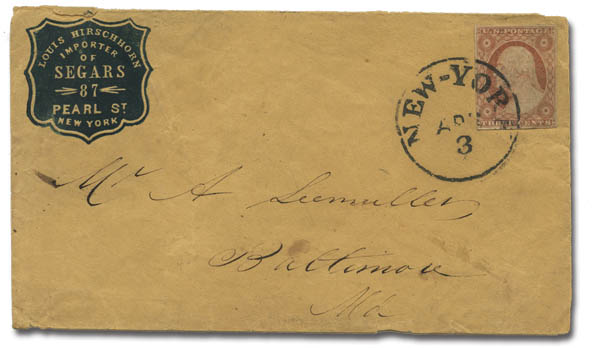 LOUIS HIRSCHHORN
IMPORTER
OF
SEGARS
87
PEARL ST
NEW YORK
U.S. POSTAGE
THREE CENTS
NEW-YOR
3
Mr A Seemuller
Baltimore
Md